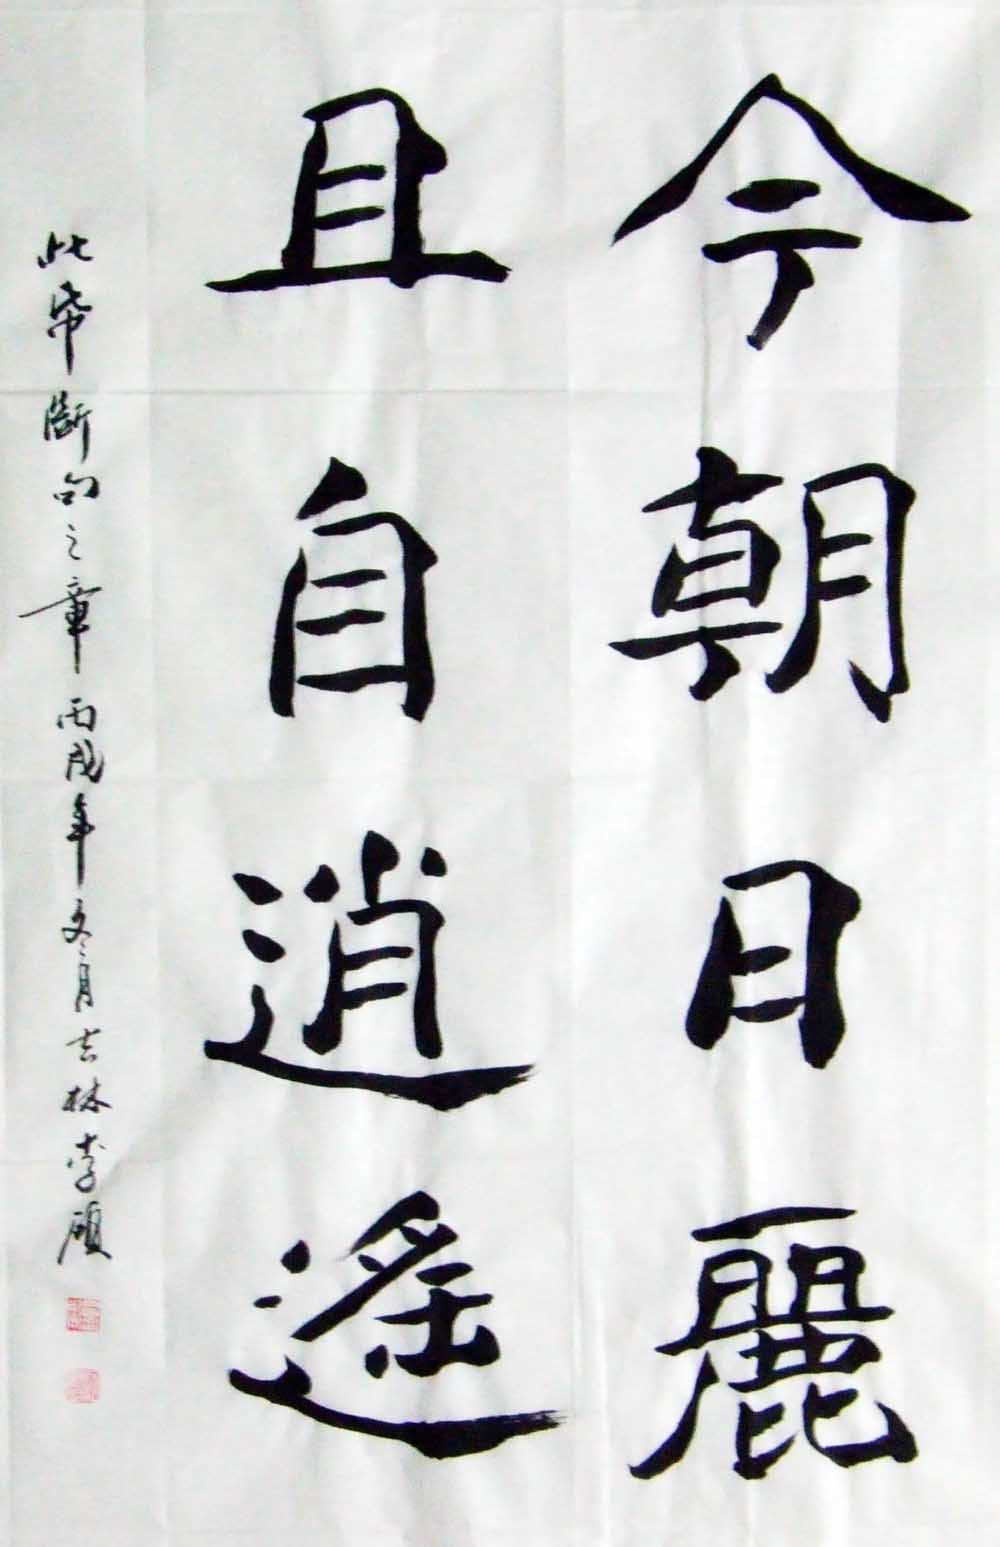 今朝日麗
且自逍遙
此帋斷句之章丙戌年冬月吉林李碩